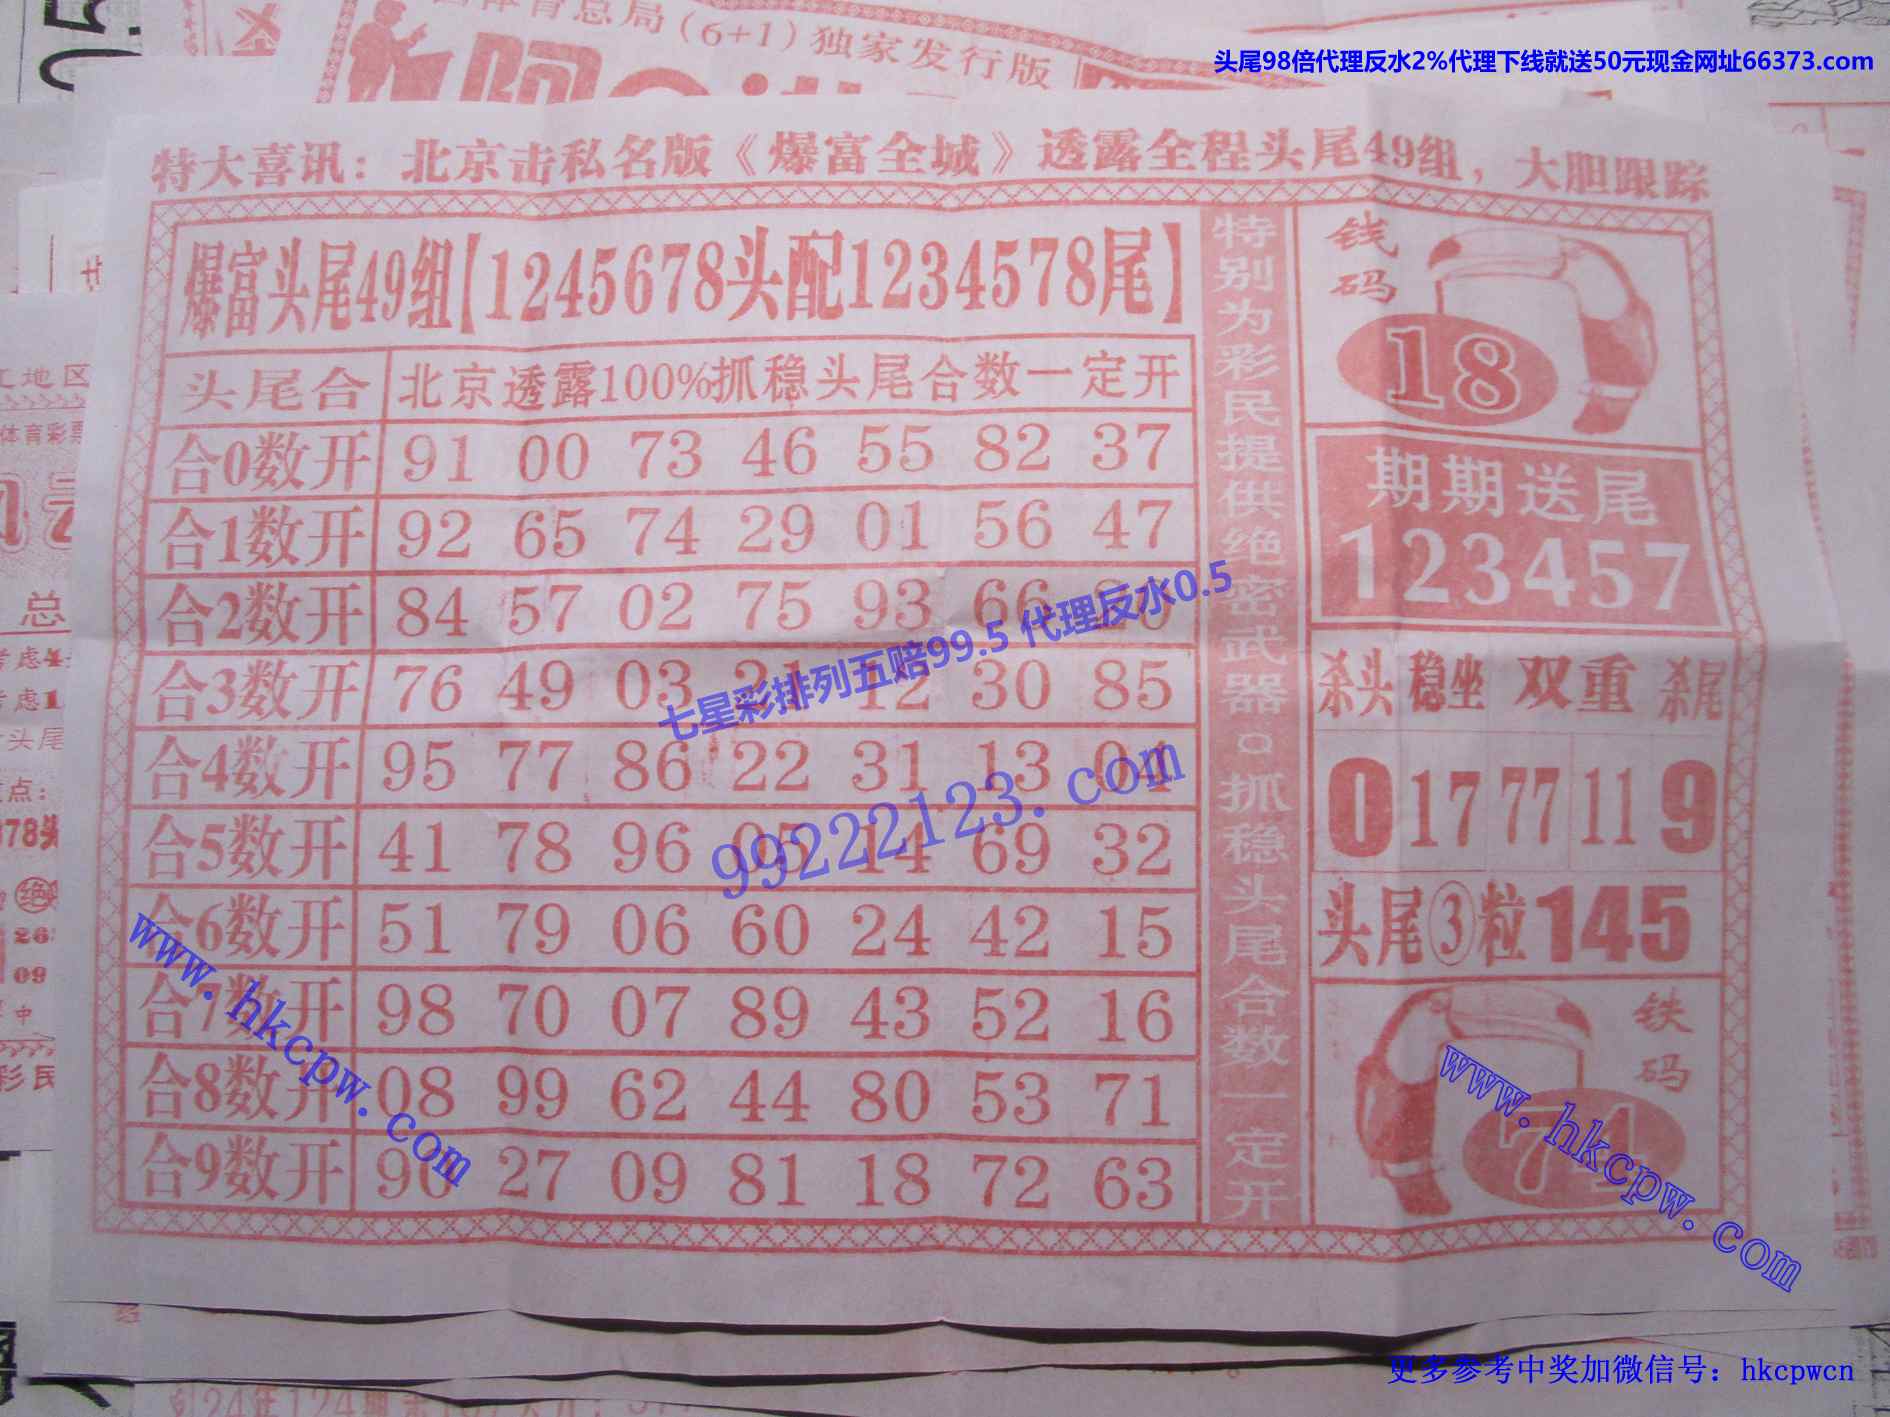 国体育总局(6+1)独家发行版
头尾98倍代理反水2%代理下线就送50元现金网址66373.com
特大喜讯：北京击私名版《爆富全城》透露全程头尾49组，大胆跟踪
爆富头尾49组【1245678头配1234578尾】
头尾合 北京透露100%抓稳头尾合数一定开
合0数开 91 00 73 46 55 82 37
合1数开 92 65 74 29 01 56 47
合2数开 84 57 02 75 93 66 20
合3数开 76 49 03 21 12 30 85
合4数开 95 77 86 22 31 13 04
合5数开 41 78 96 05 14 69 32
合6数开 51 79 06 60 24 42 15
合7数开 98 70 07 89 43 52 16
合8数开 08 99 62 44 80 53 71
合9数开 90 27 09 81 18 72 63
特别为彩民提供绝密武器。抓稳头尾合数一定开
钱码
18
期期送尾
123457
杀头 稳坐 双重 杀尾
0 17 77 11 9
头尾③粒145
铁码
74
七星彩排列五赔99.5 代理反水0.5
99222123.com
www.hkcpw.com
www.hkcpw.com
更多参考中奖加微信号：hkcpwcn
工地区
体育彩票
总
点：
头尾
378头
绝
26
09
中
彩民